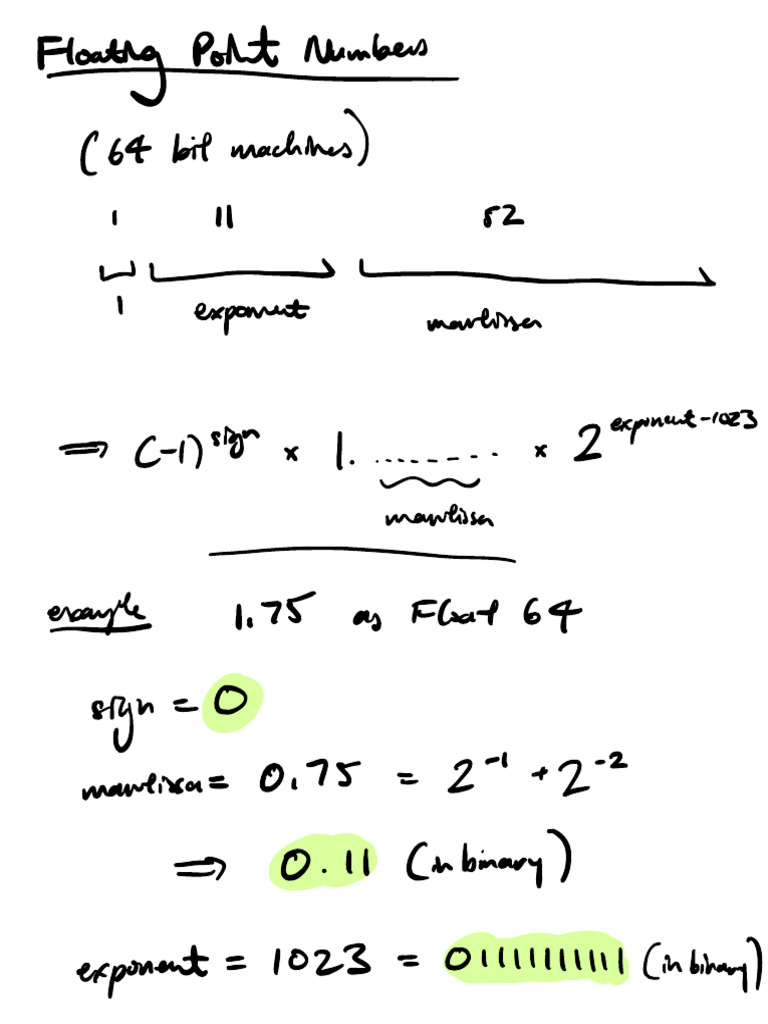 Floating Point Numbers
(64 bit machines)
1 11 52
1 exponent mantissa
⇒ (-1)^sign × 1. ........ × 2^exponent-1023
mantissa
example 1.75 as Float 64
sign = 0
mantissa = 0.75 = 2^-1 + 2^-2
⇒ 0.11 (in binary)
exponent = 1023 = 01111111111 (in binary)